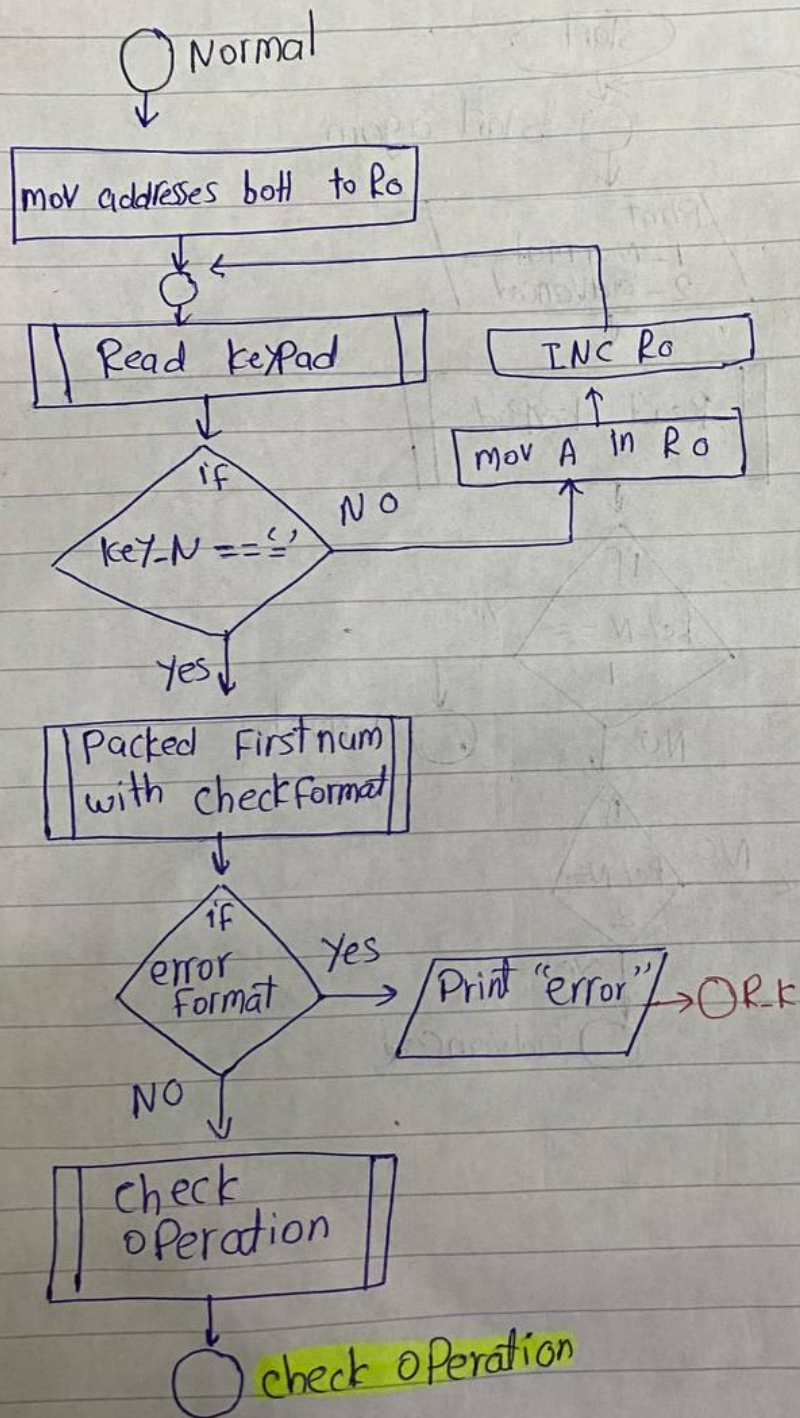 Normal
mov addresses 60H to R0
Read keypad
INC R0
mov A in R0
if
key_N == '='
NO
Yes
Packed First num
with check format
if
error
format
Yes
Print "error"
R_K
NO
check
operation
check operation